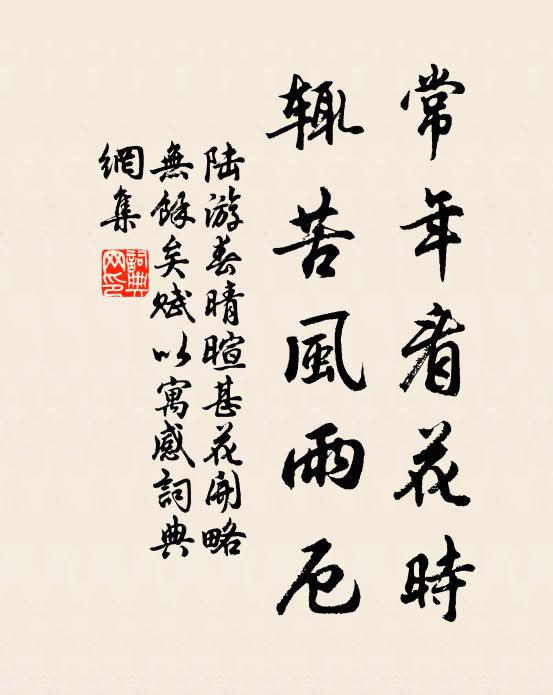 常年看花時
輒苦風雨厄
陸游春晴暄甚花開略
無餘矣賦以寓感詞典
網集
詞典网印